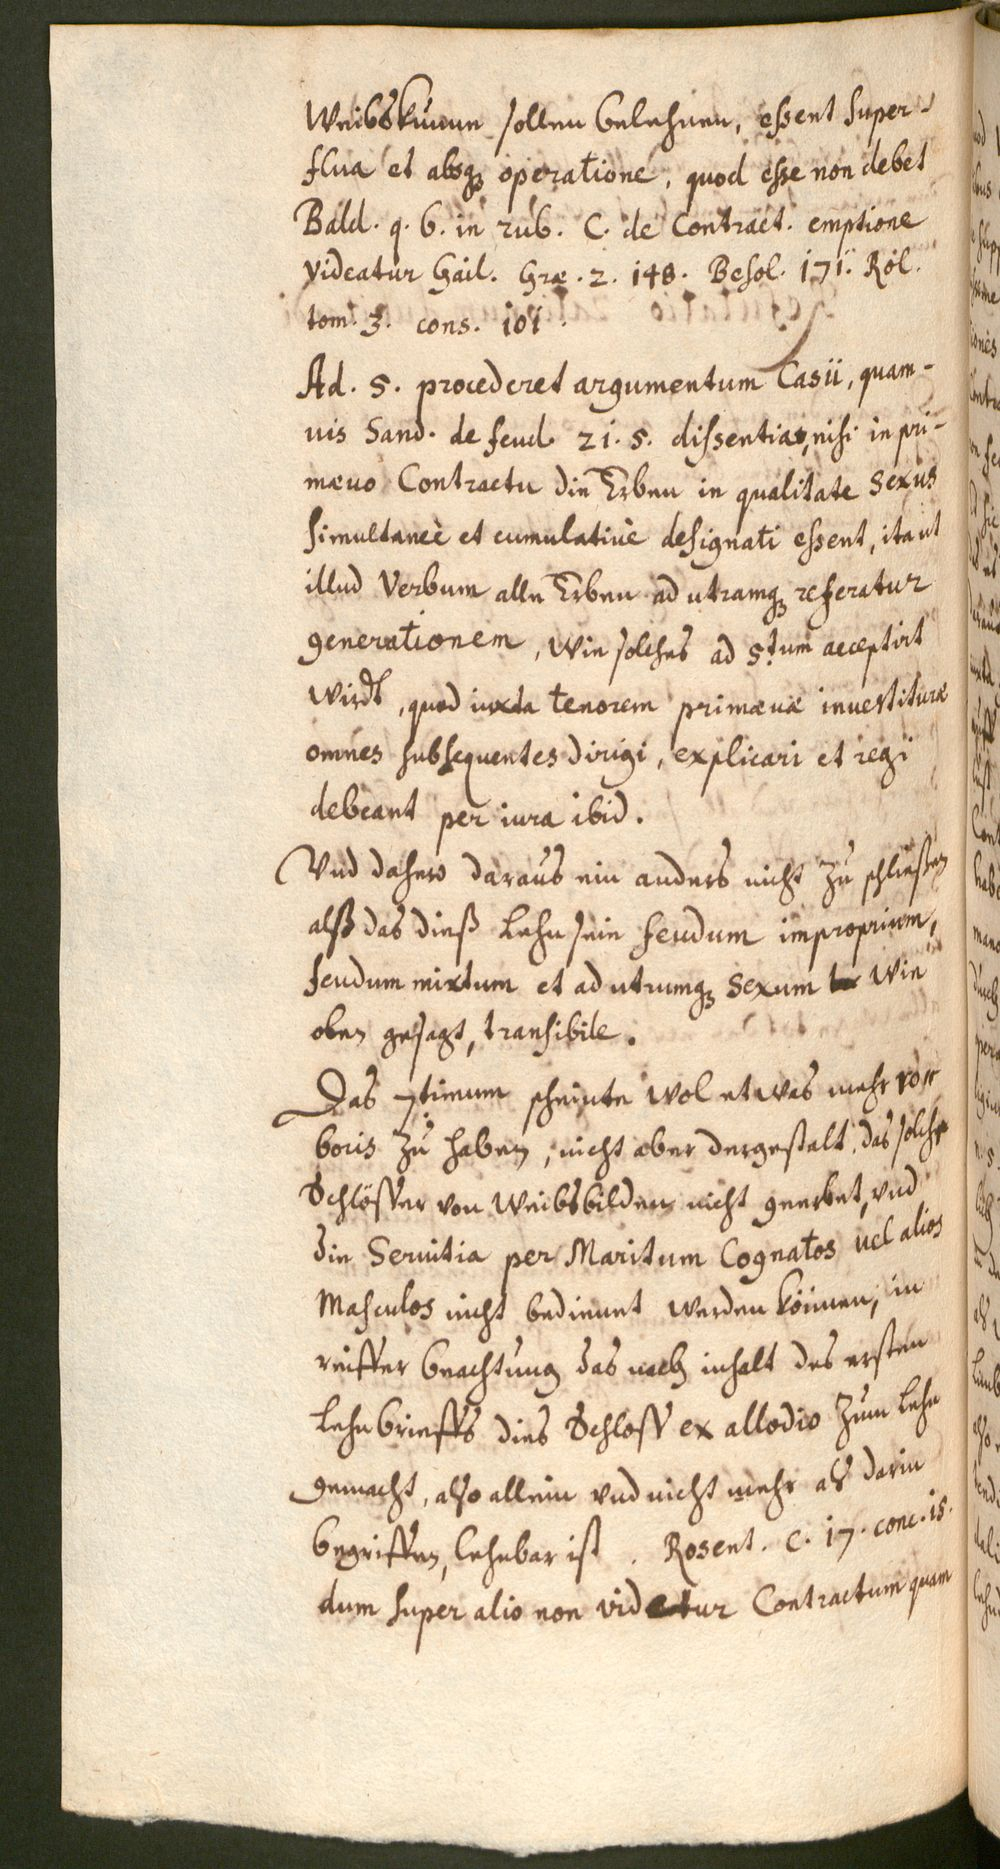 Weibskunne sollen belehnen, essent super-
flua et absq₃ operatione, quod esse non debet
Bald. q. 6. in rub. C. de Contract. emptione
videatur Gail. Græ. 2. 148. Besol. 171. Rol.
tom. 3. cons. 101.
Ad. 5. procederet argumentum Casii, quam-
uis Sand. de feud. 21. 5. dissentiat, nisi in pri-
mæuo Contractu die Erben in qualitate Sexus
simultaneè et cumulatiuè designati essent, ita ut
illud Verbum alle Erben ad utramq₃ referatur
generationem, wie solches ad 5tum acceptirt
wirdt, quod iuxta tenorem primæuæ inuestituræ
omnes subsequentes dirigi, explicari et regi
debeant per iura ibid.
Vnd dahero daraus ein anders nicht zu schließen
alß das dieß Lehn sein feudum improprium,
feudum mixtum et ad utrumq₃ Sexum wie
oben gesagt, transibile.
Das 7timum scheinte wol etwas mehr ro-
boris zu haben, nicht aber dergestalt, das solche
Schlösser von Weibsbilden nicht geerbet, vnd
die Seruitia per Maritum Cognatos uel alios
Masculos nicht bedienet werden können, in
reiffer beachtung das nach inhalt des ersten
Lehnbrieffs dies Schloss ex allodio zum Lehn
gemacht, also allein vnd nicht mehr als darin
begriffen, lehnbar ist. Rosent. C. 17. conc. 15.
dum super alio non videtur Contractum quam